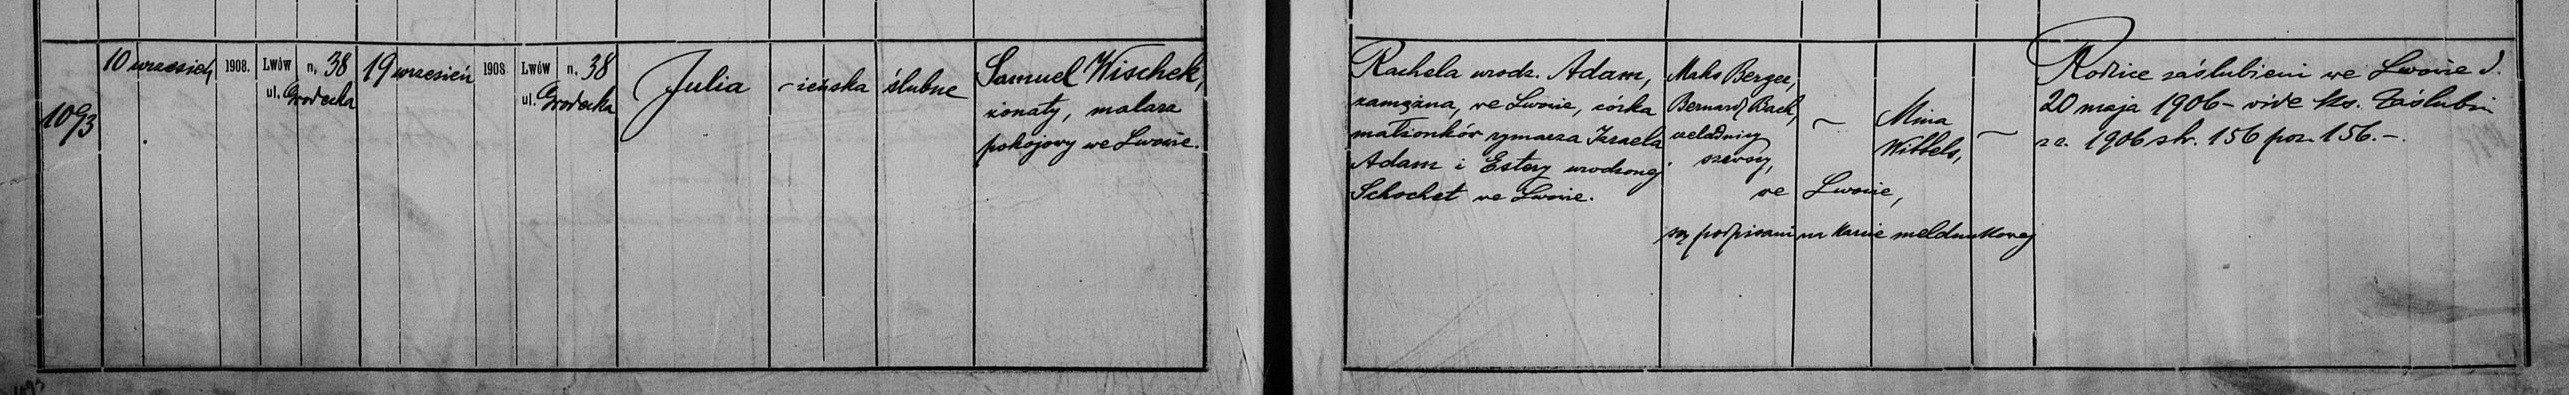 1093
10 wrzesień 1908. Lwów n. 38
ul. Grodecka
19 wrzesień 1908 Lwów n. 38
ul. Grodecka
Julia
– żeńska
ślubne
Samuel Wischek,
żonaty, malarz
pokojowy we Lwowie.
Rachela urodz. Adam,
zamężna, we Lwowie, córka
małżonków rymarza Izraela
Adam i Estery urodzonej
Schochet we Lwowie.
Maks Berger,
Bernard Bach,
czeladnicy
szewscy,
–
Mina
Wittels,
–
we Lwowie,
są podpisani na karcie meldunkowej
Rodzice zaślubieni we Lwowie d.
20 maja 1906 – vide ks. Zaślubin
za r. 1906 str. 156 poz. 156. –